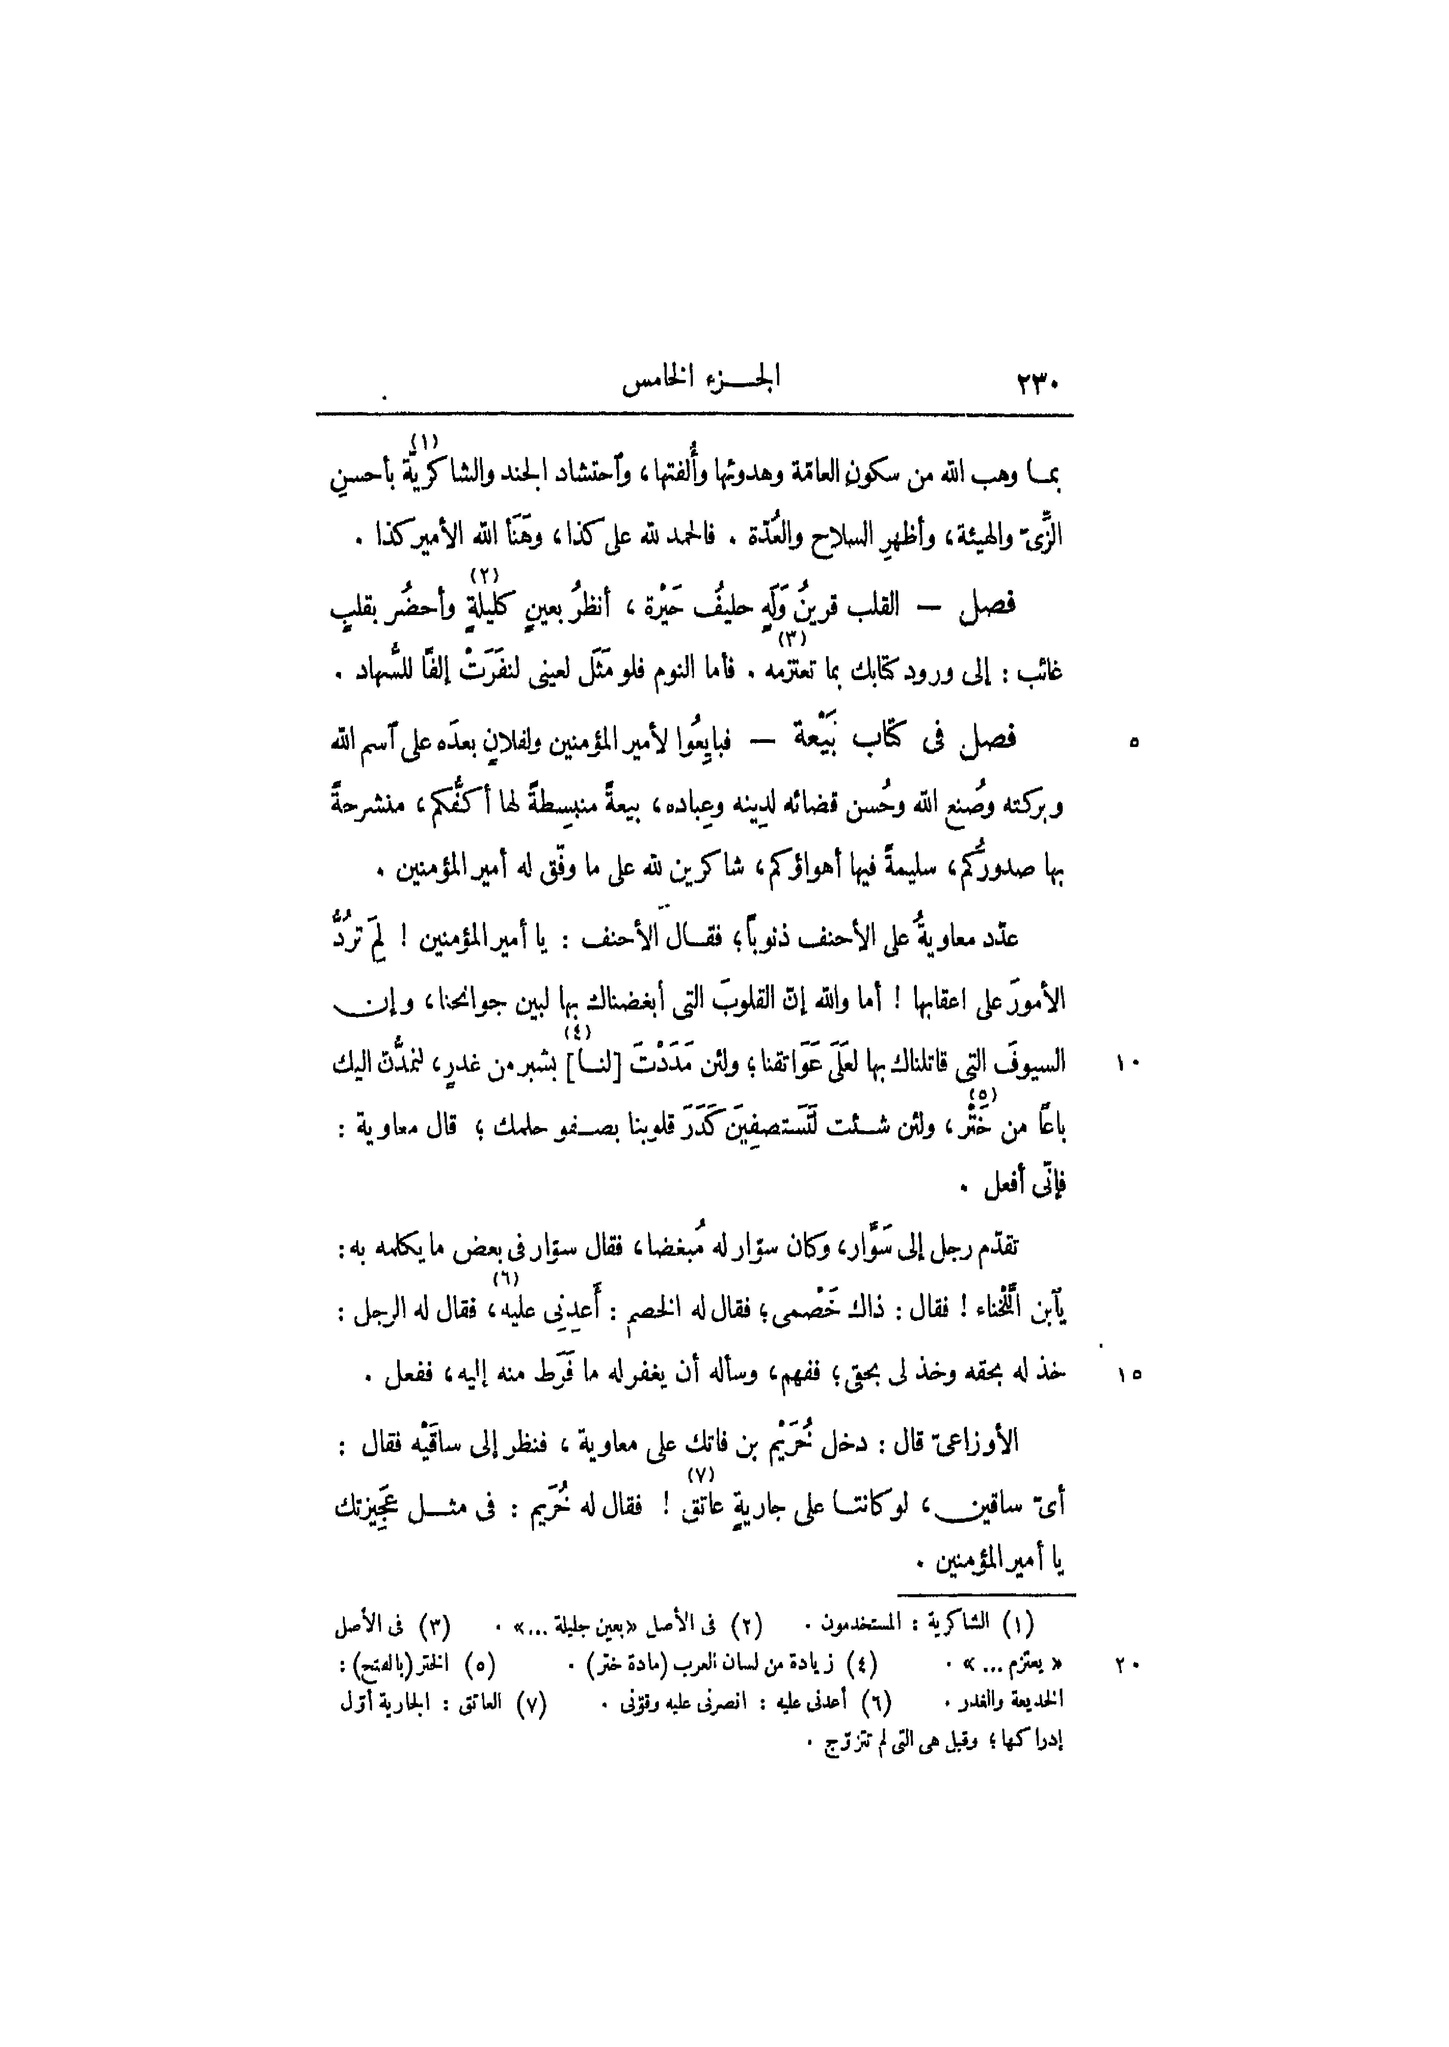 ٢٣٠ الجزء الخامس
بما وهب الله من سكونِ العامّة وهدوئها وأُلفتها، وٱحتشاد الجند والشاكريّة(١) بأحسنِ
الزِّىّ والهيئة، وأظهرِ السلاح والعُدّة . فالحمد لله على كذا، وهَنَأ الله الأمير كذا .
فصل — القلب قرينُ وَلَهٍ حليفُ حَيْرة، أنظرُ بعينٍ كليلةٍ(٢) وأحضُر بقلبٍ
غائب : إلى ورود كتابك بما تعتزمه(٣) . فأما النوم فلو مَثَل لعينى لنفَرَتْ إلفًا للسُّهاد .
٥ فصل فى كتاب بَيْعة — فبايِعُوا لأمير المؤمنين ولفلانٍ بعدَه على ٱسم الله
وبركته وصُنع الله وحُسن قضائه لدِينه وعِباده، بيعةً منبسِطةً لها أكفُّكم، منشرحةً
بها صدورُكم، سليمةً فيها أهواؤكم، شاكرين لله على ما وفّق له أمير المؤمنين .
عدّد معاويةُ على الأحنف ذنوباً؛ فقال الأحنف : يا أمير المؤمنين ! لِمَ تَرُدُّ
الأمورَ على اعقابها ! أما والله إنّ القلوبَ التى أبغضناك بها لبين جوانحنا، وإن
١٠ السيوفَ التى قاتلناك بها لعَلَى عَوَاتقنا؛ ولئن مَدَدْتَ [لنا](٤) بشبر من غدرٍ، لنمدُّنّ اليك
باعًا من خَتْر(٥)، ولئن شئت لَتَستصفِيَن كَدَرَ قلوبنا بصفو حلمك؛ قال معاوية :
فإنّى أفعل .
تقدّم رجل إلى سَوَّار، وكان سوّار له مُبغضا، فقال سوّار فى بعض ما يكلمه به:
يٱبن ٱللَّخْناء ! فقال : ذاك خَصْمى؛ فقال له الخصم : أَعدِنِى عليه(٦)، فقال له الرجل :
١٥ خذ له بحقه وخذ لى بحقى؛ ففهم، وسأله أن يغفر له ما فَرَط منه إليه، ففعل .
الأوزاعىّ قال : دخل خُرَيْم بن فاتك على معاوية، فنظر إلى ساقَيْه فقال :
أىّ ساقين، لو كانتا على جاريةٍ عاتق(٧) ! فقال له خُرَيم : فى مثل عَجِيزتك
يا أمير المؤمنين .
(١) الشاكرية : المستخدمون . (٢) فى الأصل «بعين جليلة ...» . (٣) فى الأصل
٢٠ «يعتزم ...» . (٤) زيادة من لسان العرب (مادة ختر) . (٥) الختر (بالفتح) :
الخديعة والغدر . (٦) أعدنى عليه : انصرنى عليه وقوّنى . (٧) العاتق : الجارية أوّل
إدراكها؛ وقيل هى التى لم تتزوّج .